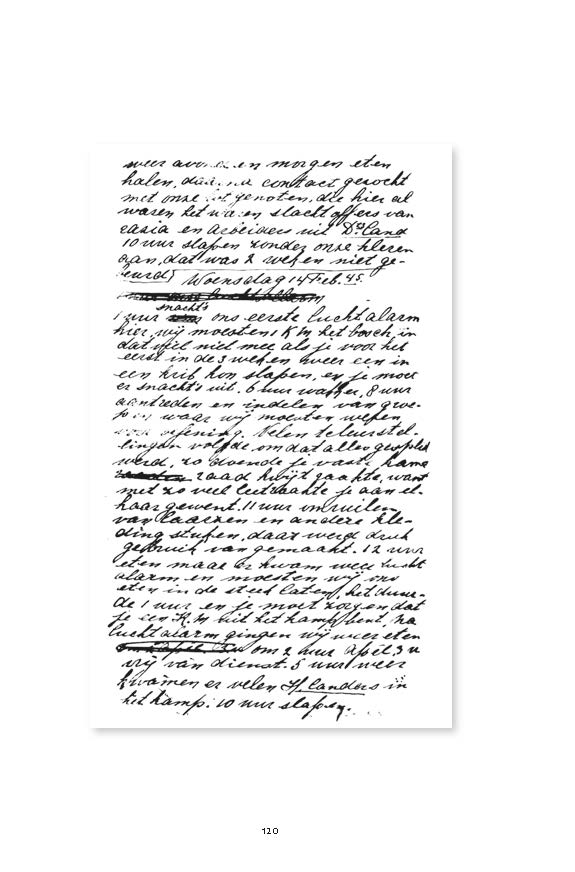 weer avond en morgen eten
halen, daarna contact gezocht
met onze lotgenoten, die hier al
waren het waren slachtoffers van
razia en arbeiders uit Dsland
10 uur slapen zonder onze kleren
aan, dat was 2 weken niet ge-
beurd) Woensdag 14 Feb. 45.
snachts
1 uur ons eerste luchtalarm
hier, wij moesten 1 K M het bosch in
dat viel niet mee als je voor het
eerst in de 3 weken weer een in
een krib kon slapen, en je moet
er snachts uit. 6 uur wakker, 8 uur
aantreden en indelen van groe-
pen waar wij moesten weken
voor oefening. Velen teleurstel-
lingen volgde omdat alles gesplits
werd, zo doende je vaste kame
raad kwijt raakte, want
met zo veel leed raakte je aan el-
kaar gewent. 11 uur omruilen
van laarzen en andere kle-
ding stukken, daar werd druk
gebruik van gemaakt. 12 uur
eten maar er kwam weer lucht
alarm en moesten wij ons
eten in de steek laten, het duur-
de 1 uur en je moet zorgen dat
je een K.M uit het kamp bent, na
luchtalarm gingen wij weer eten
om 2 uur Apèl, 3 u
vrij van dienst. 5 uur weer
kwamen er velen H.landers in
het kamp. 10 uur slapen.
120